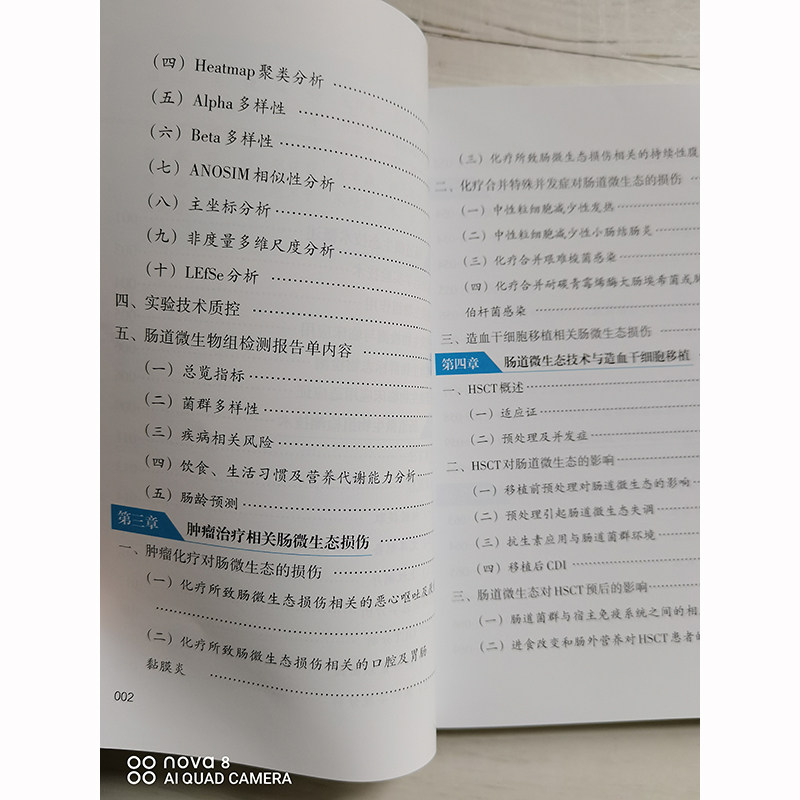 （四）Heatmap 聚类分析
（五）Alpha 多样性
（六）Beta 多样性
（七）ANOSIM 相似性分析
（八）主坐标分析
（九）非度量多维尺度分析
（十）LEfSe 分析
四、实验技术质控
五、肠道微生物组检测报告单内容
（一）总览指标
（二）菌群多样性
（三）疾病相关风险
（四）饮食、生活习惯及营养代谢能力分析
（五）肠龄预测
第三章 肿瘤治疗相关肠微生态损伤
一、肿瘤化疗对肠微生态的损伤
（一）化疗所致肠微生态损伤相关的恶心呕吐及
（二）化疗所致肠微生态损伤相关的口腔及胃肠
黏膜炎
002
nova 8
AI QUAD CAMERA
（三）化疗所致肠微生态损伤相关的持续性腹
二、化疗合并特殊并发症对肠道微生态的损伤
（一）中性粒细胞减少性发热
（二）中性粒细胞减少性小肠结肠炎
（三）化疗合并艰难梭菌感染
（四）化疗合并耐碳青霉烯酶大肠埃希菌或
伯杆菌感染
三、造血干细胞移植相关肠微生态损伤
第四章 肠道微生态技术与造血干细胞移植
一、HSCT 概述
（一）适应证
（二）预处理及并发症
二、HSCT 对肠道微生态的影响
（一）移植前预处理对肠道微生态的影响
（二）预处理引起肠道微生态失调
（三）抗生素应用与肠道菌群环境
（四）移植后 CDI
三、肠道微生态对 HSCT 预后的影响
（一）肠道菌群与宿主免疫系统之间的相
（二）进食改变和肠外营养对 HSCT 患者的